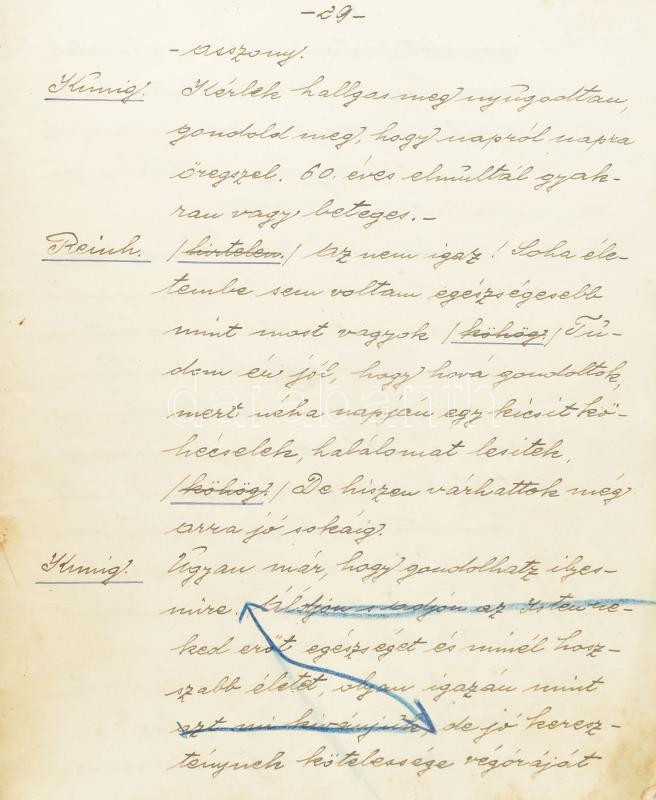 -29-
- asszony.
Kunig. Kérlek hallgas meg nyugodtan,
gondold meg, hogy napról napra
öregszel. 60. éves elmultál gyak-
ran vagy beteges.-
Reinh. /hirtelen./ az nem igaz! Soha éle-
tembe sem voltam egészségesebb
mint most vagyok /köhög./ Tu-
dom én jól, hogy hová gondoltok,
mert néha napján egy kicsit kö-
hécselek, halálomat lesitek,
/köhög./ De hiszen várhattok még
arra jó sokáig.
Kunig. Ugyan már, hogy gondolhatz ilyes-
mire. Áldjon s adjon az Isten ne-
ked erőt egészséget és minél hosz-
szabb életet, olyan igazán mint
azt mi kivánjuk, de jó keresz-
ténynek kötelessége végóráját
darabanth